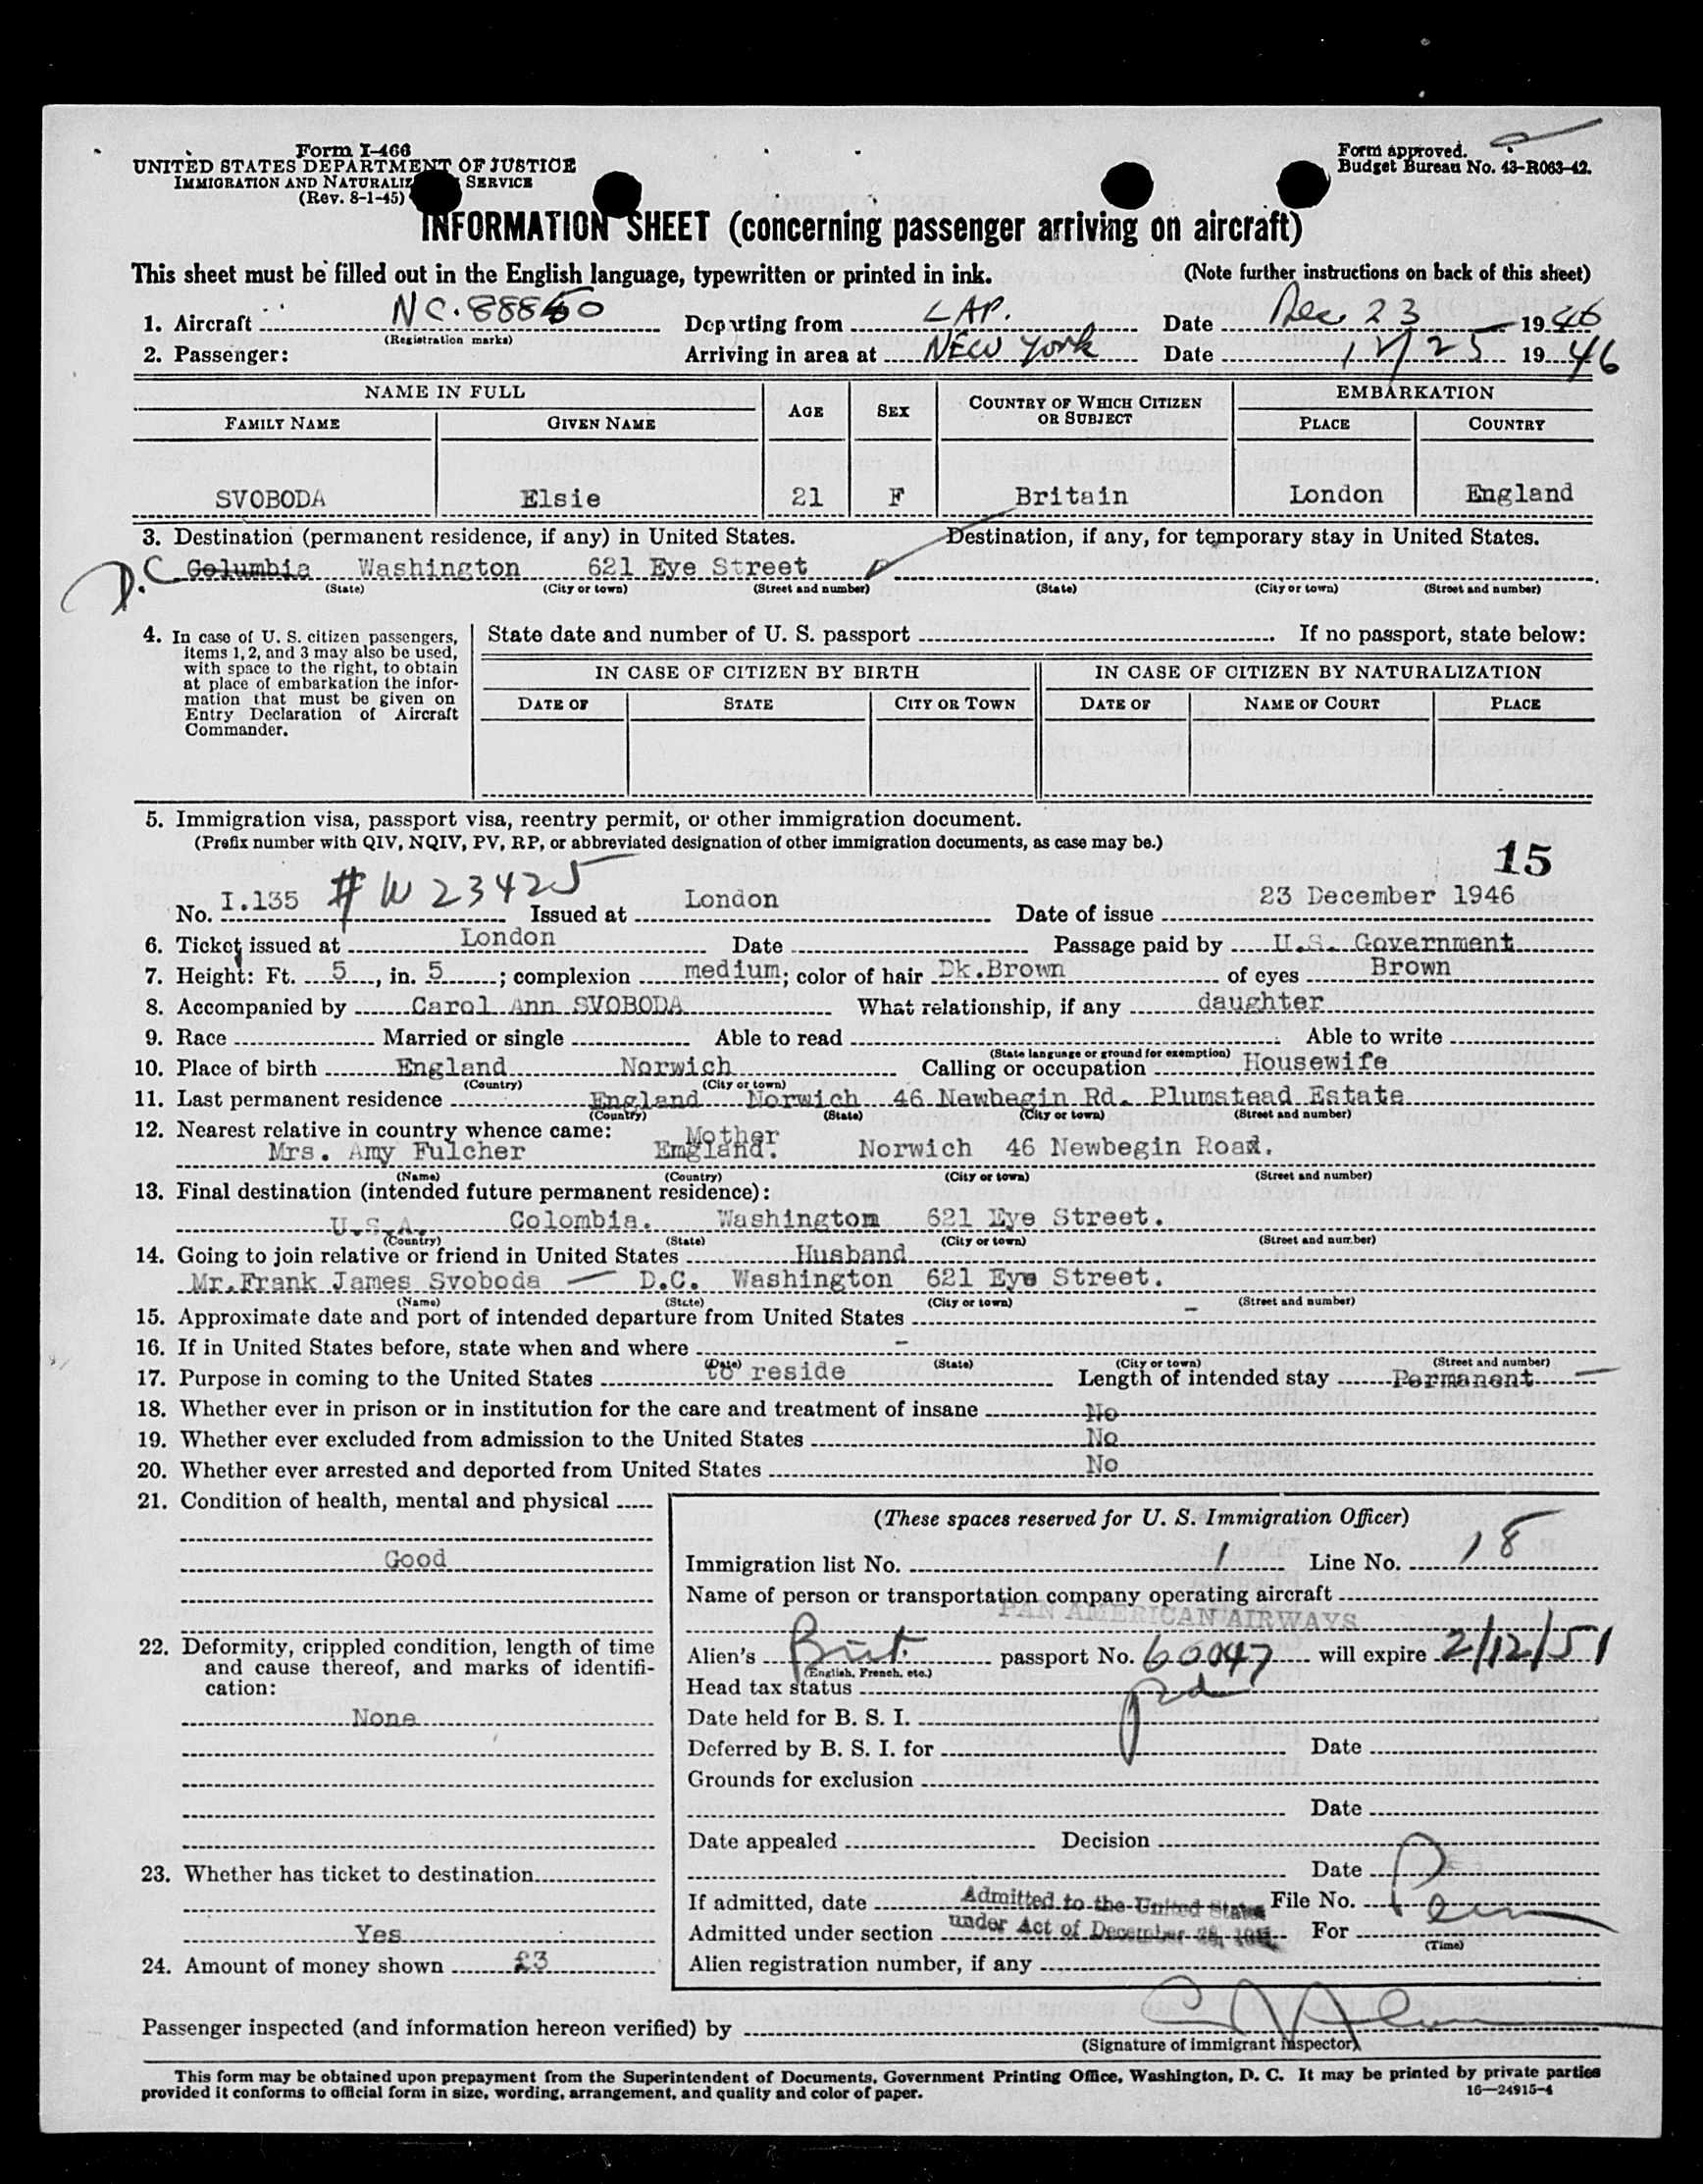 Form I-466
UNITED STATES DEPARTMENT OF JUSTICE
IMMIGRATION AND NATURALIZ SERVICE
(Rev. 8-1-45)
Form approved.
Budget Bureau No. 43-R063-42.
INFORMATION SHEET (concerning passenger arriving on aircraft)
This sheet must be filled out in the English language, typewritten or printed in ink. (Note further instructions on back of this sheet)
1. Aircraft NC.88860 Departing from LAP. Date Dec 23 1946
(Registration marks)
2. Passenger: Arriving in area at New York Date 12/25 1946
NAME IN FULL AGE SEX COUNTRY OF WHICH CITIZEN OR SUBJECT EMBARKATION
FAMILY NAME GIVEN NAME PLACE COUNTRY
SVOBODA Elsie 21 F Britain London England
3. Destination (permanent residence, if any) in United States. Destination, if any, for temporary stay in United States.
D.C. Columbia Washington 621 Eye Street
(State) (City or town) (Street and number) (State) (City or town) (Street and number)
4. In case of U. S. citizen passengers, items 1, 2, and 3 may also be used, with space to the right, to obtain at place of embarkation the information that must be given on Entry Declaration of Aircraft Commander.
State date and number of U. S. passport If no passport, state below:
IN CASE OF CITIZEN BY BIRTH IN CASE OF CITIZEN BY NATURALIZATION
DATE OF STATE CITY OR TOWN DATE OF NAME OF COURT PLACE
5. Immigration visa, passport visa, reentry permit, or other immigration document.
(Prefix number with QIV, NQIV, PV, RP, or abbreviated designation of other immigration documents, as case may be.)
15
No. I.135 # W 23425 Issued at London Date of issue 23 December 1946
6. Ticket issued at London Date Passage paid by U.S. Government
7. Height: Ft. 5, in. 5; complexion medium; color of hair Dk.Brown of eyes Brown
8. Accompanied by Carol Ann SVOBODA What relationship, if any daughter
9. Race Married or single Able to read Able to write
(State language or ground for exemption)
10. Place of birth England Norwich Calling or occupation Housewife
(Country) (City or town)
11. Last permanent residence England Norwich 46 Newbegin Rd. Plumstead Estate
(Country) (State) (City or town) (Street and number)
12. Nearest relative in country whence came: Mother
Mrs. Amy Fulcher England. Norwich 46 Newbegin Road.
(Name) (Country) (City or town) (Street and number)
13. Final destination (intended future permanent residence):
U.S.A. Colombia. Washington 621 Eye Street.
(Country) (State) (City or town) (Street and number)
14. Going to join relative or friend in United States Husband
Mr.Frank James Svoboda — D.C. Washington 621 Eye Street.
(Name) (State) (City or town) (Street and number)
15. Approximate date and port of intended departure from United States -
16. If in United States before, state when and where -
(Date) (State) (City or town) (Street and number)
17. Purpose in coming to the United States to reside Length of intended stay Permanent
18. Whether ever in prison or in institution for the care and treatment of insane No
19. Whether ever excluded from admission to the United States No
20. Whether ever arrested and deported from United States No
21. Condition of health, mental and physical
Good
22. Deformity, crippled condition, length of time and cause thereof, and marks of identification:
None
23. Whether has ticket to destination
Yes
24. Amount of money shown £3
(These spaces reserved for U. S. Immigration Officer)
Immigration list No. 1 Line No. 18
Name of person or transportation company operating aircraft
PAN AMERICAN AIRWAYS
Alien's Brit. passport No. 60047 will expire 2/12/51
(English, French, etc.)
Head tax status pd
Date held for B. S. I.
Deferred by B. S. I. for Date
Grounds for exclusion
Date
Date appealed Decision
Date
If admitted, date Admitted to the United States File No.
Admitted under section under Act of December 28, For
(Time)
Alien registration number, if any
Passenger inspected (and information hereon verified) by
(Signature of immigrant inspector)
This form may be obtained upon prepayment from the Superintendent of Documents, Government Printing Office, Washington, D. C. It may be printed by private parties
provided it conforms to official form in size, wording, arrangement, and quality and color of paper. 16—24915-4